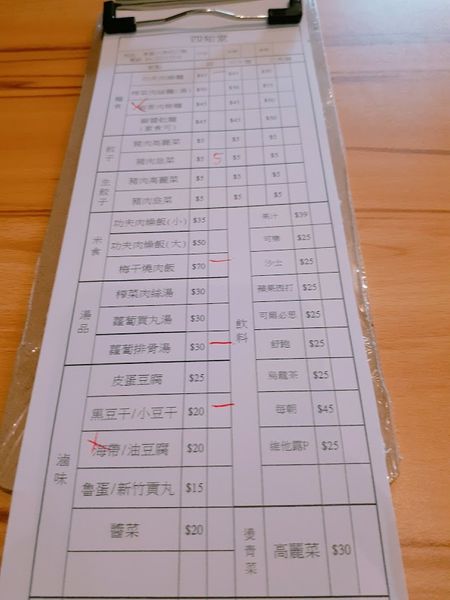 四知堂
功夫肉燥麵 $45 $45 $50
榨菜肉絲麵(湯) $50 $50
肉燥麵 $45 $45 $50
麻醬乾麵 $45 $45 $50
(素食可)
麵食
豬肉高麗菜 $5 $5 $5
豬肉韭菜 $5 5 $5 $5
餃子
豬肉高麗菜 $5 $5 $5
豬肉韭菜 $5 $5 $5
生餃子
功夫肉燥飯(小) $35
功夫肉燥飯(大) $50
梅干燒肉飯 $70
米食
榨菜肉絲湯 $30
蘿蔔貢丸湯 $30
蘿蔔排骨湯 $30
湯品
皮蛋豆腐 $25
黑豆干/小豆干 $20
海帶/油豆腐 $20
魯蛋/新竹貢丸 $15
醬菜 $20
滷味
果汁 $39
可樂 $25
沙士 $25
蘋果西打 $25
可爾必思 $25
舒跑 $25
烏龍茶 $25
每朝 $45
維他露P $25
飲料
燙青菜
高麗菜 $30